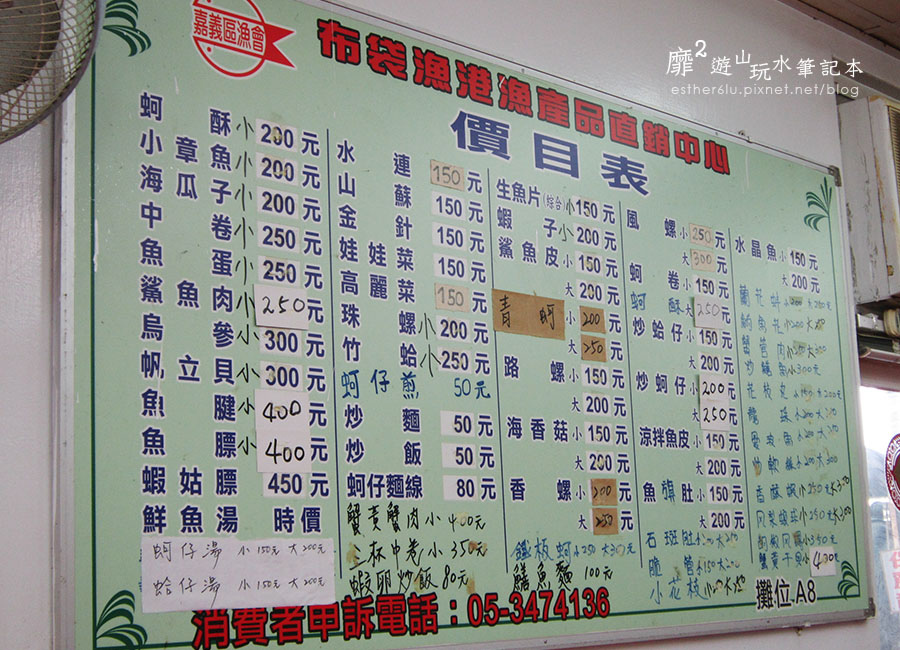 嘉義區漁會
布袋漁港漁產品直銷中心
價目表
靡²遊山玩水筆記本
esther6lu.pixnet.net/blog
蚵酥小200元
小章魚小200元
海瓜子小200元
中卷小250元
魚蛋小250元
鯊魚肉小250元
烏參小300元
帆立貝小300元
魚腱小400元
魚膘小400元
蝦姑膘450元
鮮魚湯 時價
蚵仔湯 小150元 大200元
蛤仔湯 小150元 大200元
水蓮150元
山蘇150元
金針150元
娃娃菜150元
高麗菜150元
珠螺小200元
竹蛤小250元
蚵仔煎 50元
炒麵50元
炒飯50元
蚵仔麵線80元
蟹黃蟹肉小400元
三杯中卷小350元
蝦卵炒飯80元
生魚片(綜合)小150元
蝦子小200元
鯊魚皮小150元
大200元
青蚵小200元
大250元
路螺小150元
大200元
海香菇小150元
大200元
香螺小200元
大250元
鐵板蚵小250大300元
鱔魚麵100元
風螺小250元
大300元
蚵卷小150元
蚵酥大250元
炒蛤仔小150元
大200元
炒蚵仔小200元
大250元
涼拌魚皮小150元
大200元
魚鰾肚小150元
大200元
石斑肚小200大250
小花枝
水晶魚小150元
大200元
攤位.A8
消費者申訴電話：05-3474136